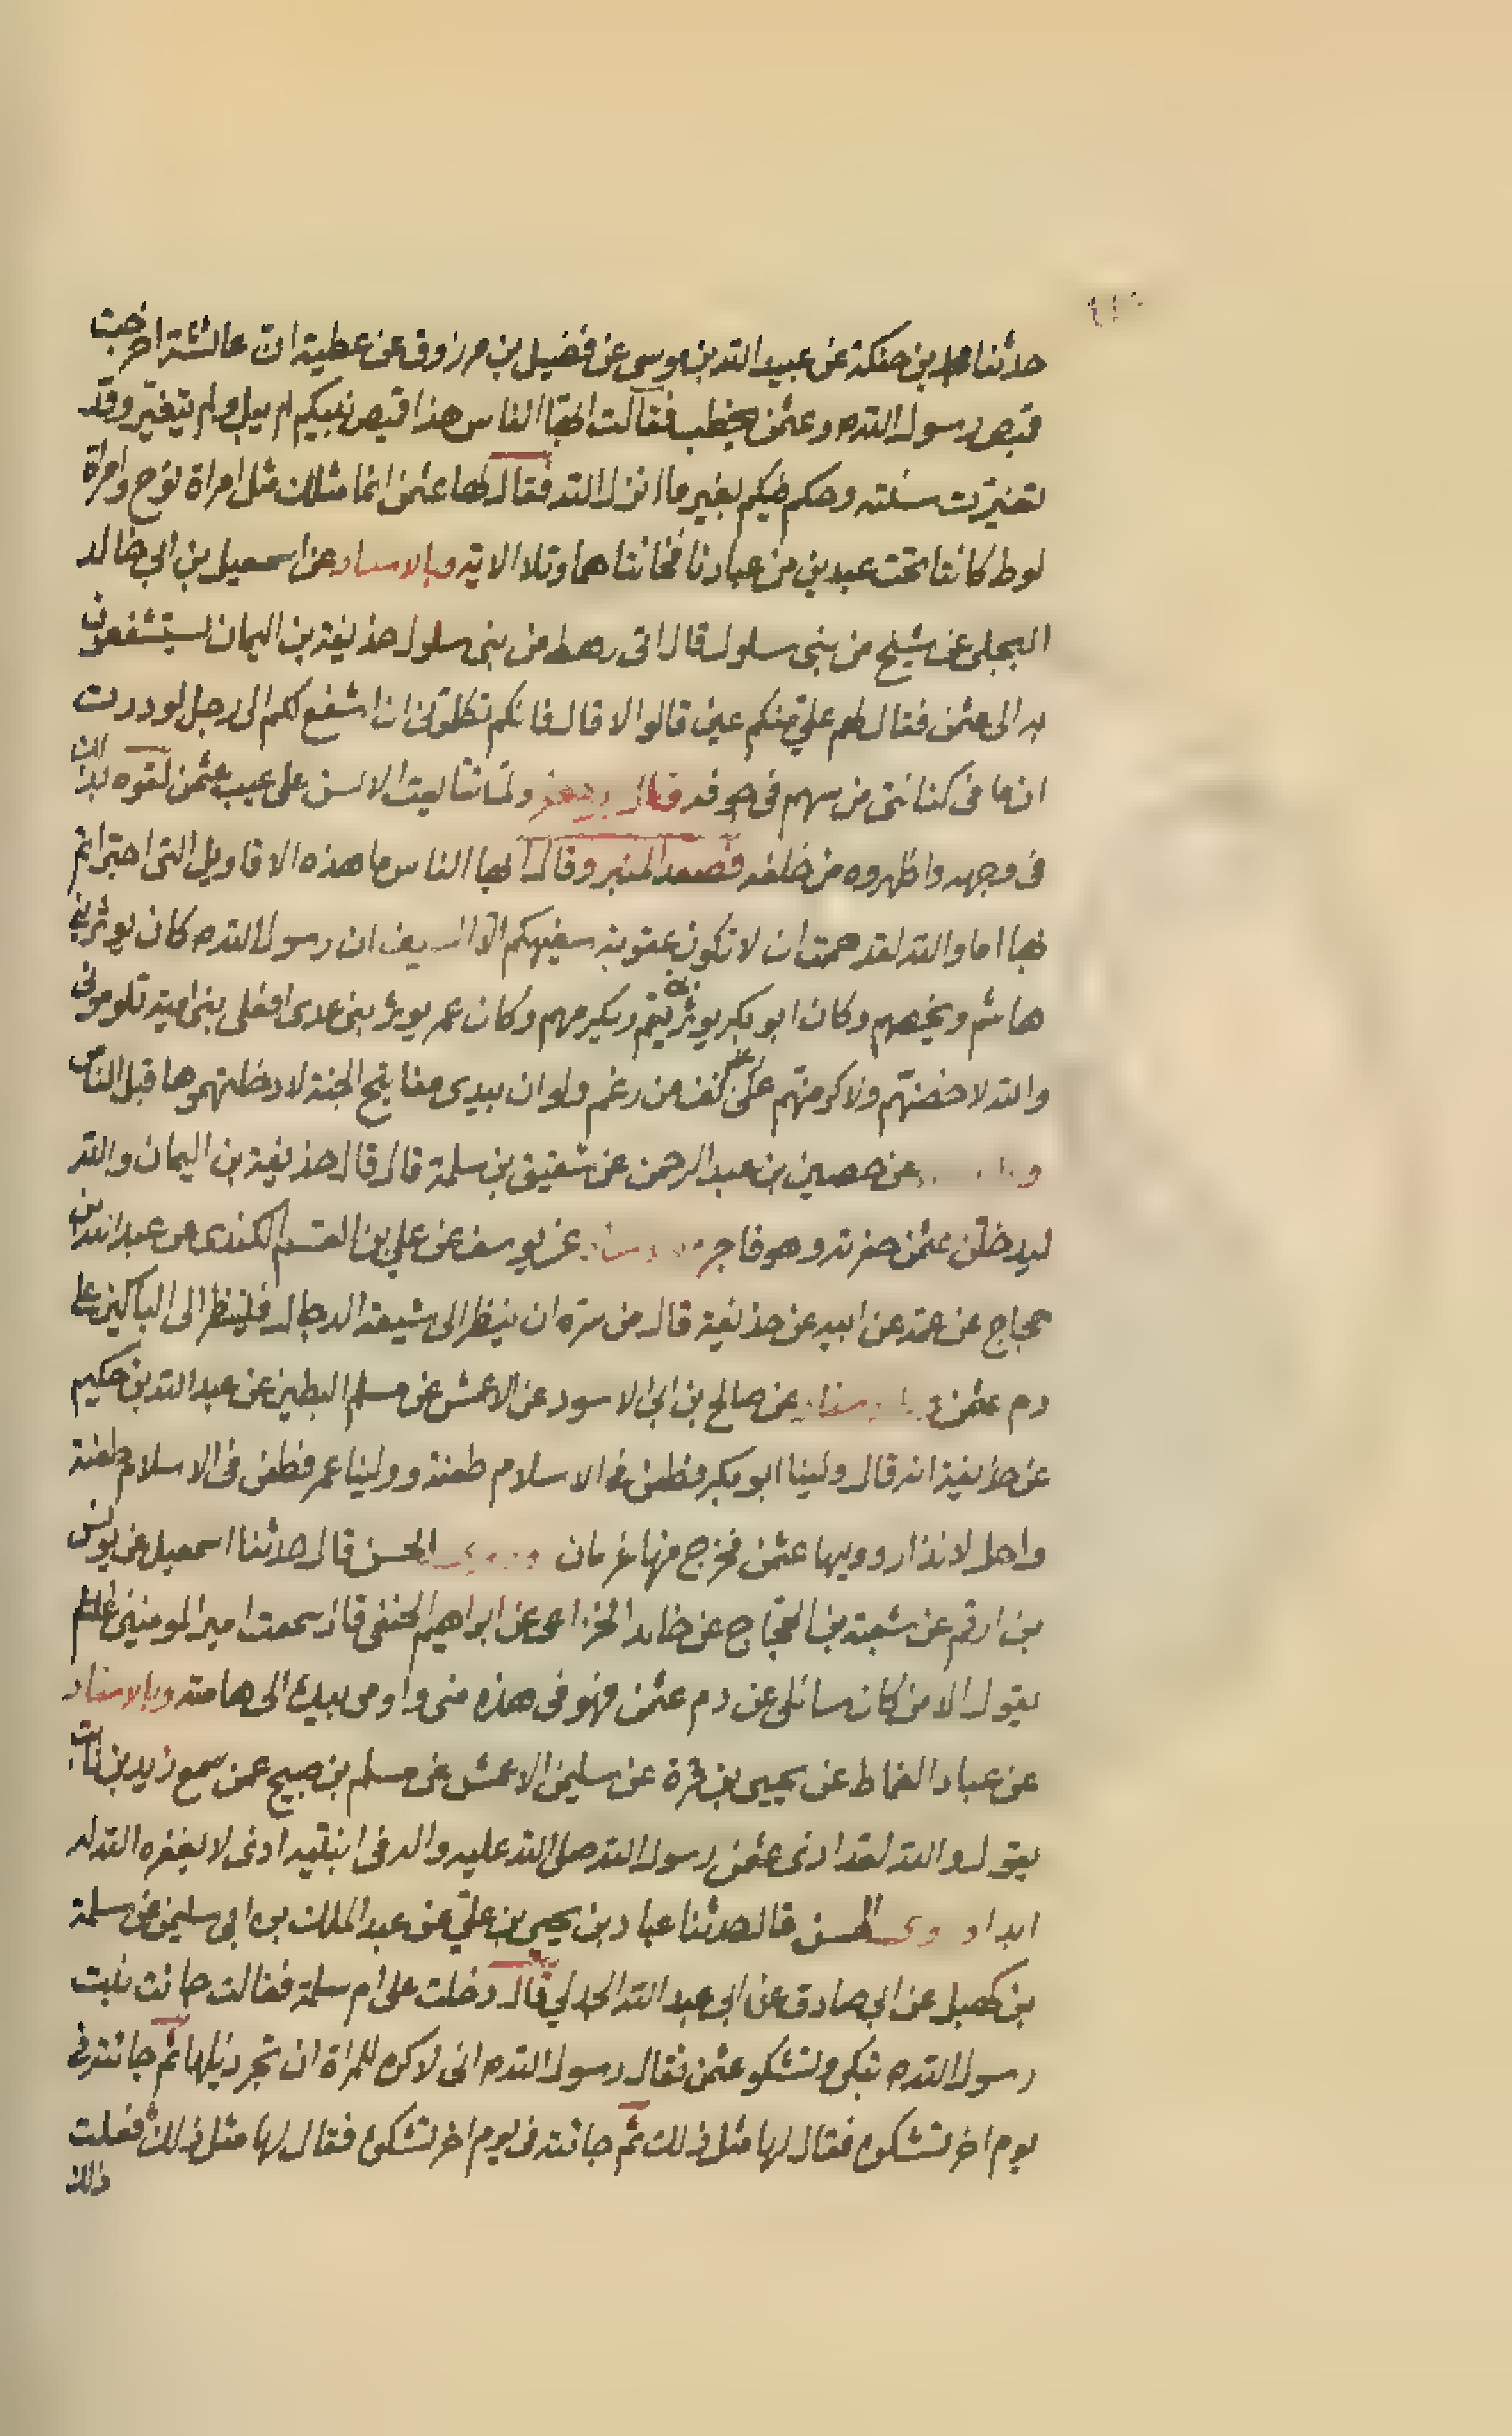 حدثنا بن حنكة عن عبيد الله بن موسى عن فضيل بن مرزوق عن عطية ان عائشة اخرجت
قميص رسول الله ص وعثمن يخطب فقالت ايها الناس هذا قميص نبيكم لم يبل ولم يتغير وقد
تغيرت سنته وحكم فيكم بغير ما انزل الله فقال لها عثمن انما مثلك مثل امراة نوح وامراة
لوط كانتا تحت عبدين من عبادنا فخانتاهما وتلا الاية وبالاسناد عن اسمعيل بن ابي خالد
البجلي عن شيخ من بني سلول قال اتى رهط من بني سلول حذيفة بن اليمان يستشفعون
به الى عثمن فقال لهم علي منكم عين قالوا لا قال فانكم تكلفونى ان اشفع لكم الى رجل لوددت
ان ما في كنانتي من سهم في جوفه قال ولما تتابعت الالسن على عيب عثمن لقوه بذلك
في وجهه واظهروه من خلفه فصعد المنبر وقال ايها الناس ما هذه الاقاويل التي اجتراتم
بها اما والله لقد هممت ان لا تكون عقوبة سفيهكم الا السيف ان رسول الله ص كان يوثر بني
هاشم ويخصهم وكان ابو بكر يوثر بتيم ويكرمهم وكان عمر يوثر بني عدي افعلى بني امية تلوموني
والله لاخصنهم ولاكرمنهم على انف من رغم ولو ان بيدى مفاتيح الجنة لادخلتهموها قبل الناس
عن حصين بن عبد الرحمن عن شقيق بن سلمة قال قال حذيفة بن اليمان والله
ليدخلن عثمن حفرته وهو فاجر عن يوسف عن علي بن القسم الكندى عن عبد الله بن
حجاج عن عمه عن ابيه عن حذيفة قال من سره ان ينظر الى شيعة الدجال فلينظر الى الباكين على
دم عثمن وبالاسناد عن صالح بن ابي الاسود عن الاعمش عن مسلم البطين عن عبد الله بن حكيم
عن حذيفة انه قال ولينا ابو بكر فطعن في الاسلام طعنة وولينا عمر فطعن في الاسلام طعنة
لانذار ووليها عثمن فخرج منها عريان الحسن قال حدثنا اسمعيل عن يونس
بن ارقم عن شعبة بن الحجاج عن خالد الخزاعى عن ابراهيم الحنفي قال سمعت امير المومنين
يقول الا من كان سائلى عن دم عثمن فهو في هذه مني واومى بيده الى هامته وبالاسناد
عن عباد عن يحيى بن قرة عن سليمن الاعمش عن مسلم بن صبيح عمن سمع زيد بن ثابت
يقول والله لقد اذى عثمن رسول الله صلى الله عليه واله في ابنتيه اذى لا يغفره الله له
ابدا الحسن قال حدثنا عباد بن يحيى بن علي عن عبد الملك بن ابي سليمن عن سلمة
بن كهيل عن ابي صادق عن ابي عبد الله الجدلي قال دخلت على ام سلمة فقالت جائت بنت
رسول الله ص تبكى وتشكو عثمن فقال رسول الله ص انى لاكره للمراة ان تجر ذيلها ثم جائته في
يوم اخر تشكوه فقال لها مثل ذلك ثم جائته في يوم اخر تشكوه فقال لها مثل ذلك ففعلت
ذلك